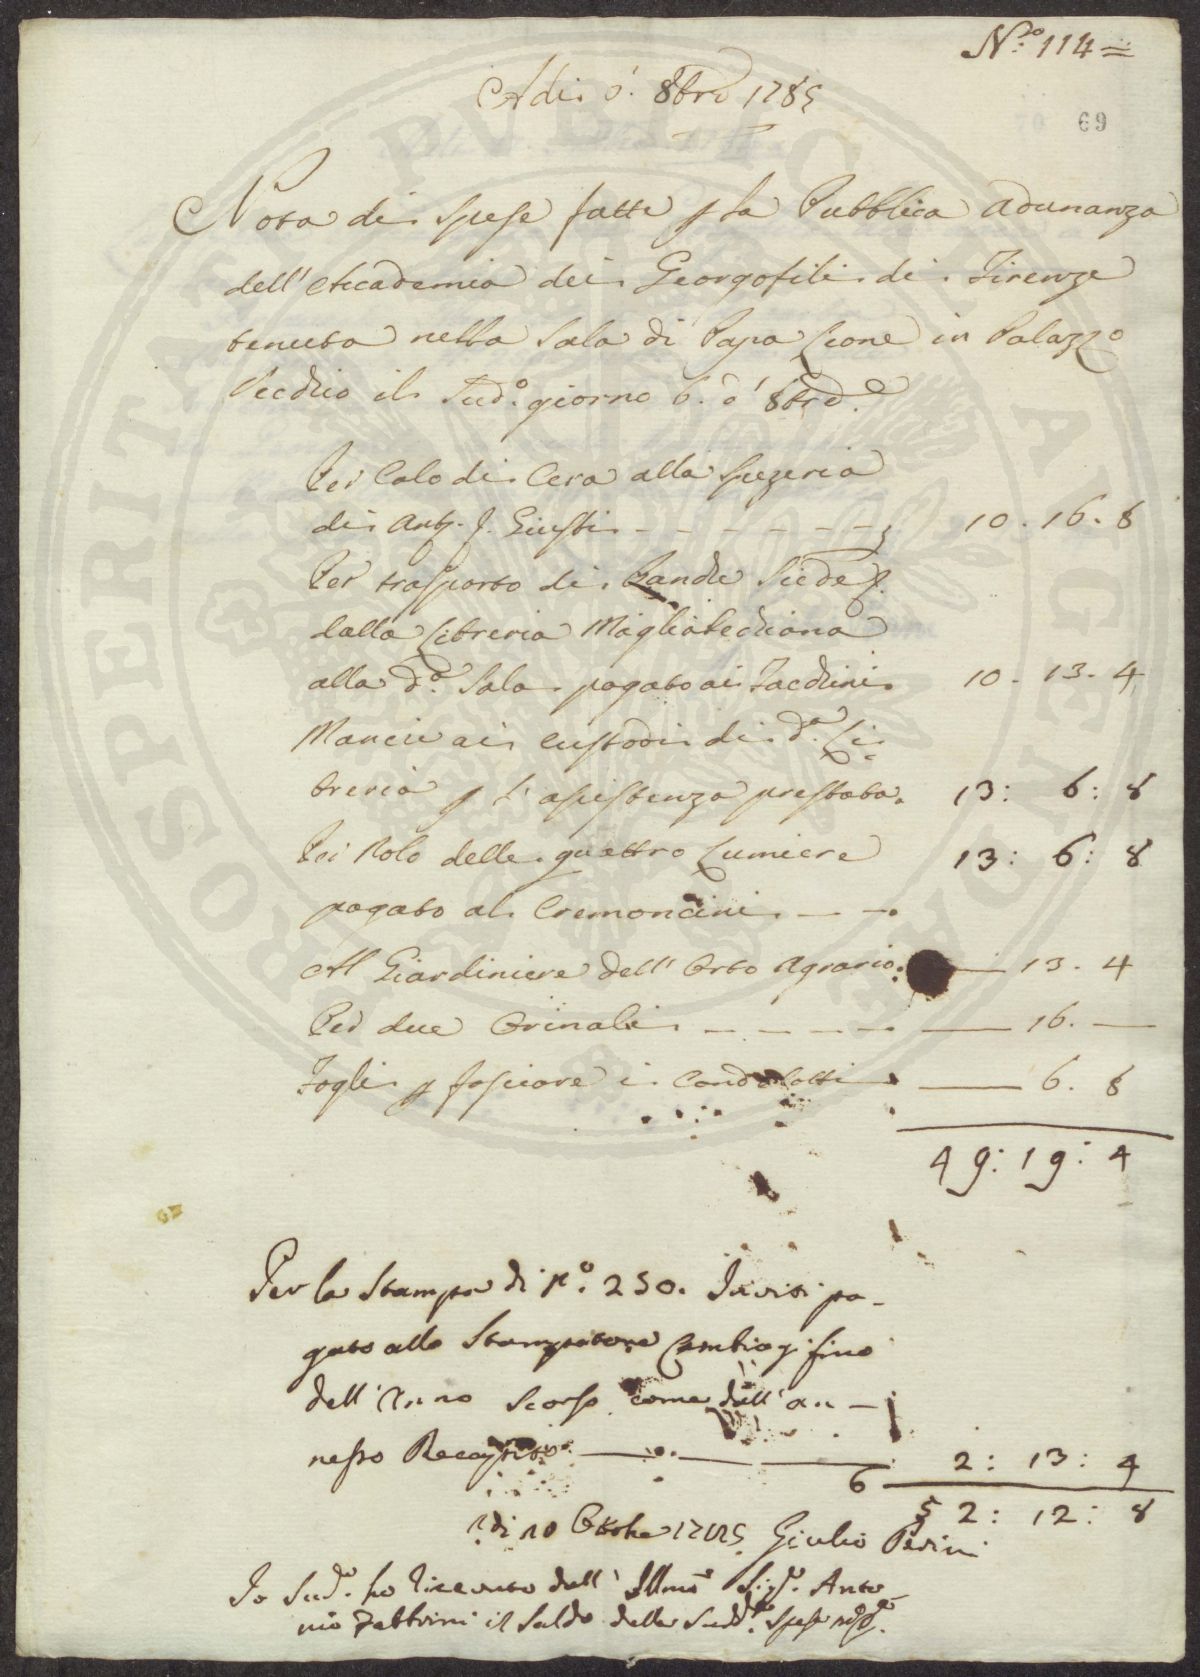 N.o 114 =
Adi 6. 8bre 1785
69
Nota di Spese fatte p la Pubblica Adunanza
dell'Accademia dei Georgofili di Firenze
tenuta nella Sala di Papa Leone in Palazzo
Vecchio il Sud.o giorno 6. 8bre
Per Calo di Cera alla Spezeria
di Ant. F. Giusti - - - - - - - 10. 16. 8
Per trasporto di Panche Siede
dalla Libreria Magliabechiana
alla d.a Sala pagato ai Facchini 10. 13. 4
Mancie ai Custodi di d.a Li-
breria p l'assistenza prestata. 13: 6: 8
Per Nolo delle quattro Lumiere 13: 6: 8
pagato al Cremoncini - - .
Al Giardiniere dell'Orto Agrario. — 13. 4
Per due Orinali - - - - - — 16. —
Fogli p fasciare i Condolotti — 6. 8
49: 19: 4
Per la Stampa di N.o 250. Invisi pa-
gato allo Stampatore Cambiagi fino
dell'Anno Scorso come dall'an-
nesso Recapito — — — 2: 13: 4
6 52: 12: 8
Adi 10 Ottobre 1785 Giulio Perini
Io Sud.o ho ricevuto dall'Illmo Sig.r Anto-
nio Fabbrini il Saldo delle Sudd.e Spese
PROSPERITATI PVBLICAE AVGENDAE